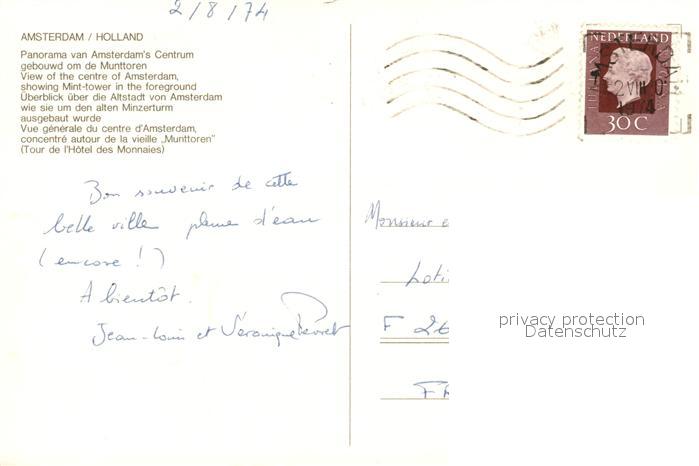 2/8/74
AMSTERDAM / HOLLAND
Panorama van Amsterdam's Centrum
gebouwd om de Munttoren
View of the centre of Amsterdam,
showing Mint-tower in the foreground
Überblick über die Altstadt von Amsterdam
wie sie um den alten Minzerturm
ausgebaut wurde
Vue générale du centre d'Amsterdam,
concentré autour de la vieille „Munttoren"
(Tour de l'Hôtel des Monnaies)
Bon souvenir de cette
belle ville pleine d'eau
(encore !)
A bientôt.
Jean-Louis et Véronique
NEDERLAND
JULIANA REGINA
30 C
1974
Monsieur e
Loti
F 26
FR
privacy protection
Datenschutz